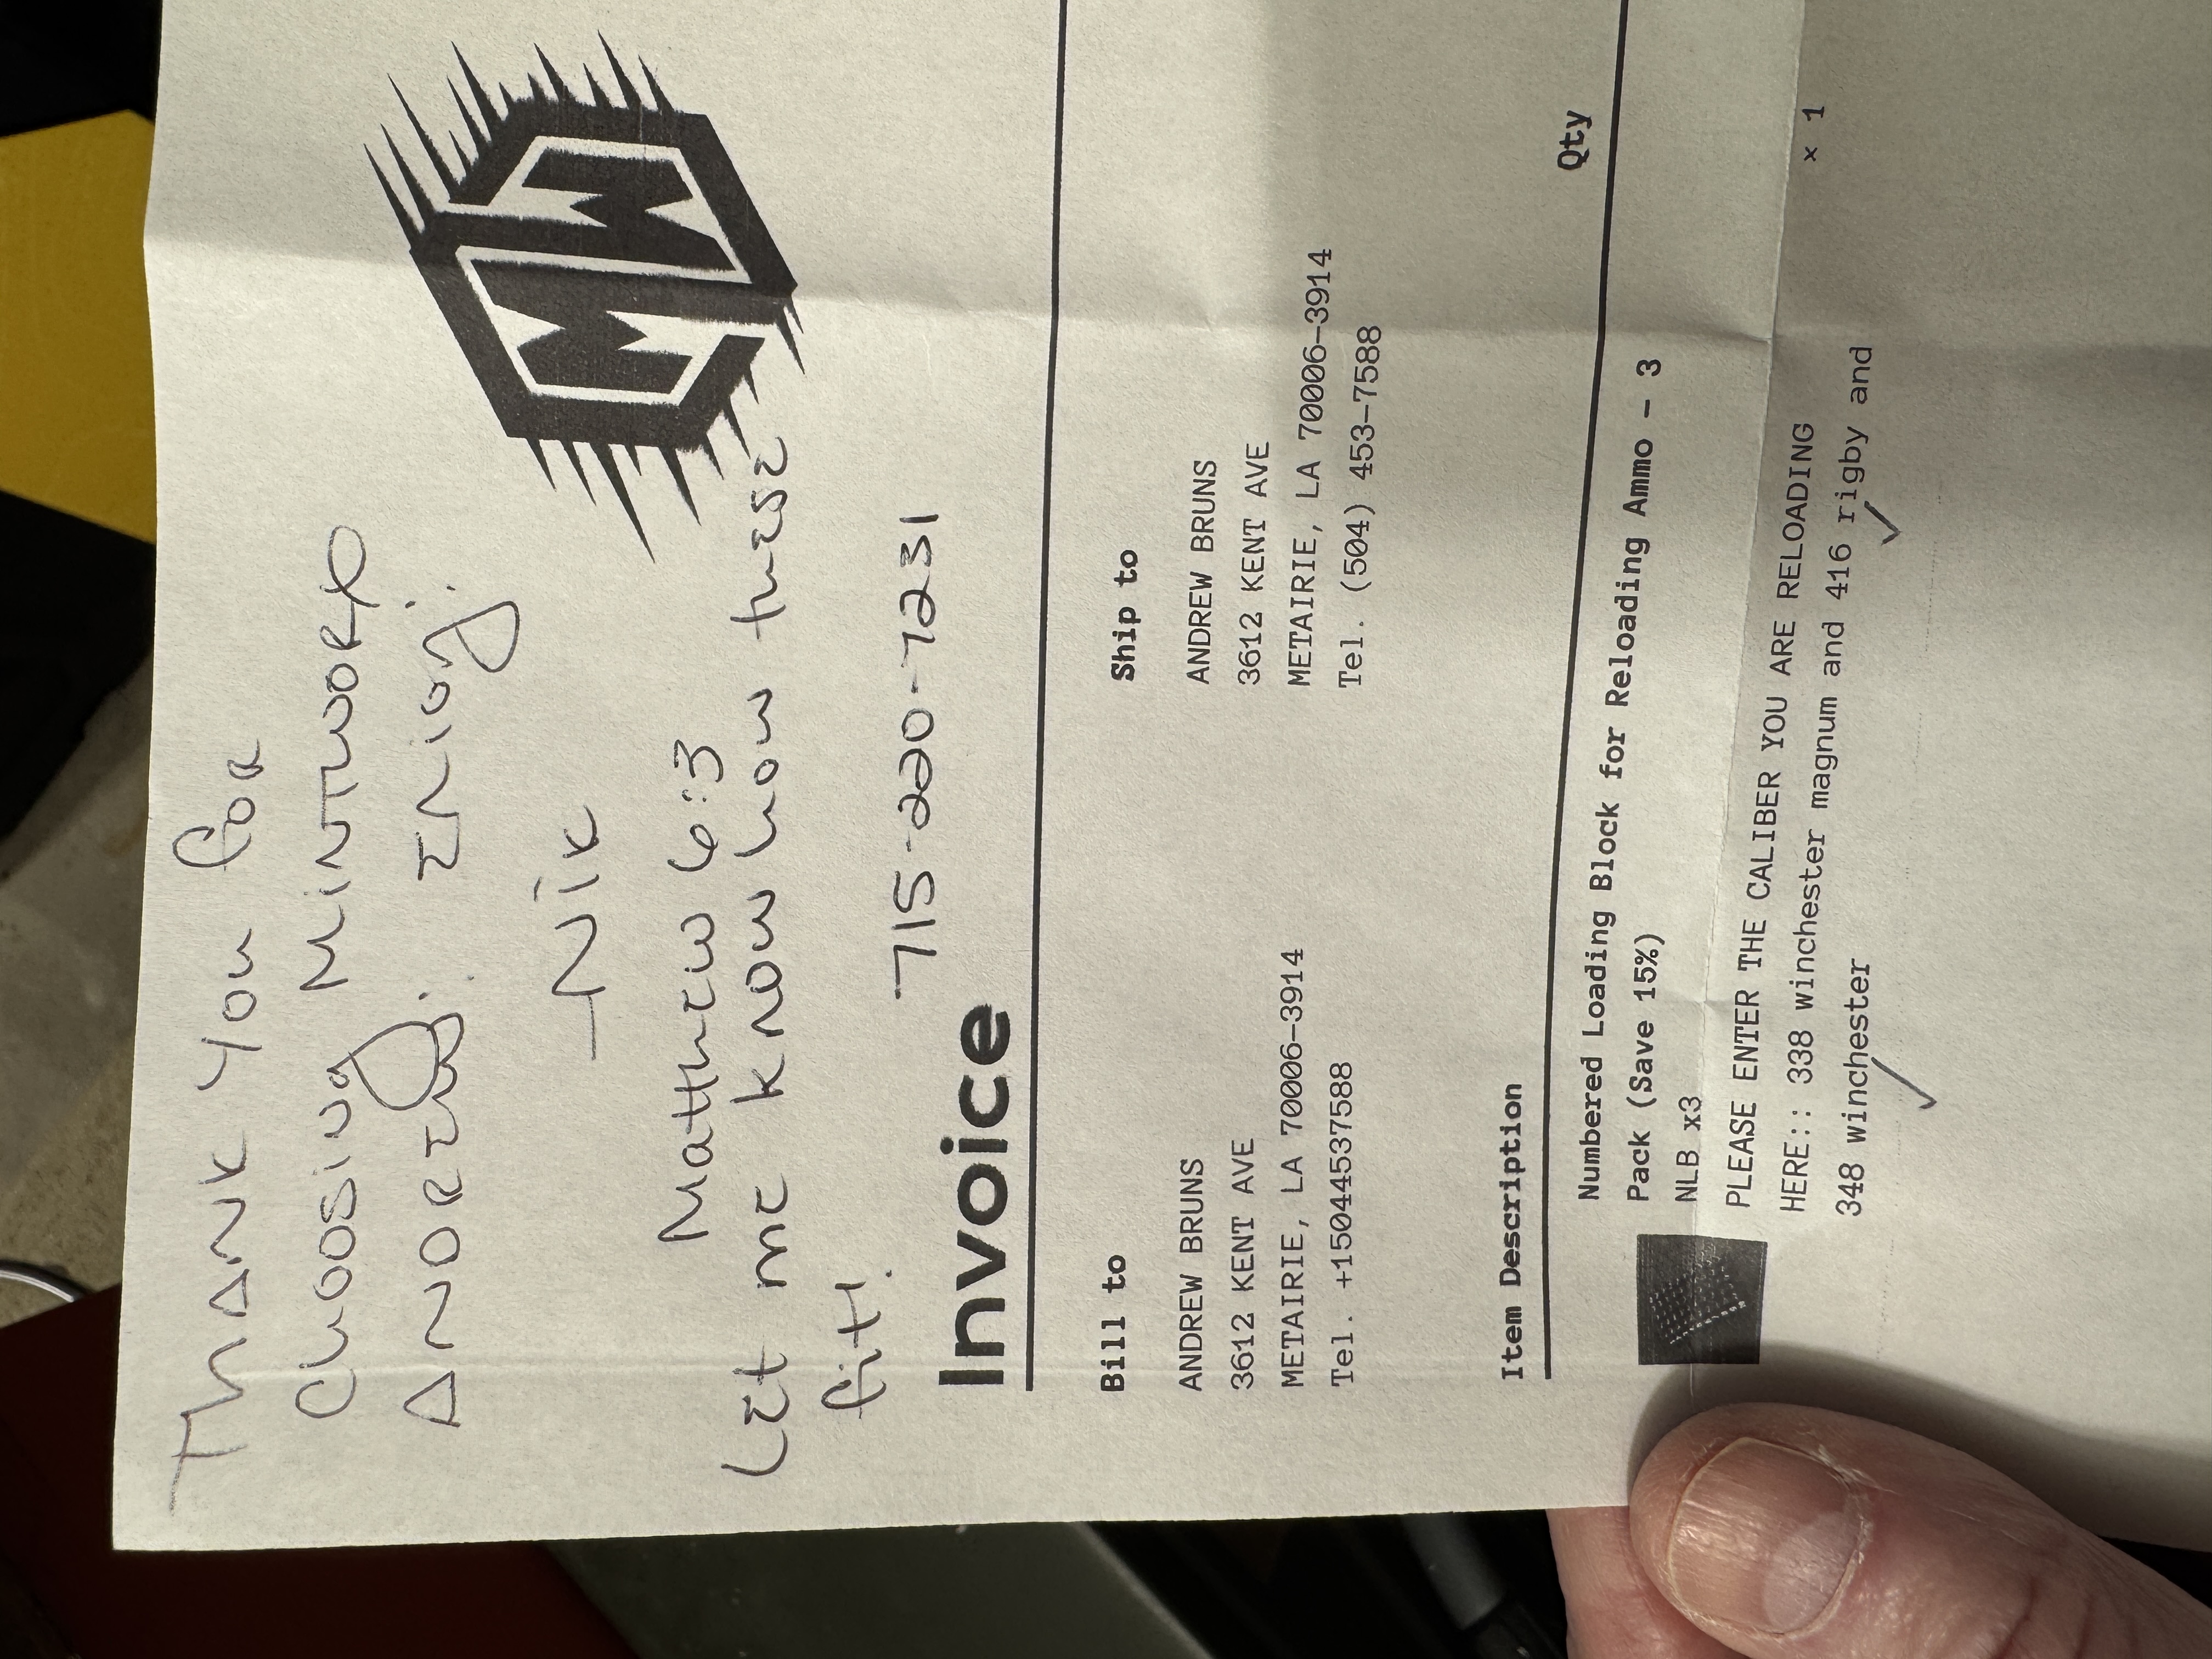 Thank you for
Choosing Mintworx
Andrew! Enjoy!
-Nik
Matthew 6:3
Let me know how these
fit! 715-220-7231
MW
Invoice
Bill to
ANDREW BRUNS
3612 KENT AVE
METAIRIE, LA 70006-3914
Tel. +15044537588
Ship to
ANDREW BRUNS
3612 KENT AVE
METAIRIE, LA 70006-3914
Tel. (504) 453-7588
Item Description Qty
Numbered Loading Block for Reloading Ammo - 3
Pack (Save 15%)
NLB x3
PLEASE ENTER THE CALIBER YOU ARE RELOADING
HERE:: 338 winchester magnum and 416 rigby and
348 winchester
× 1